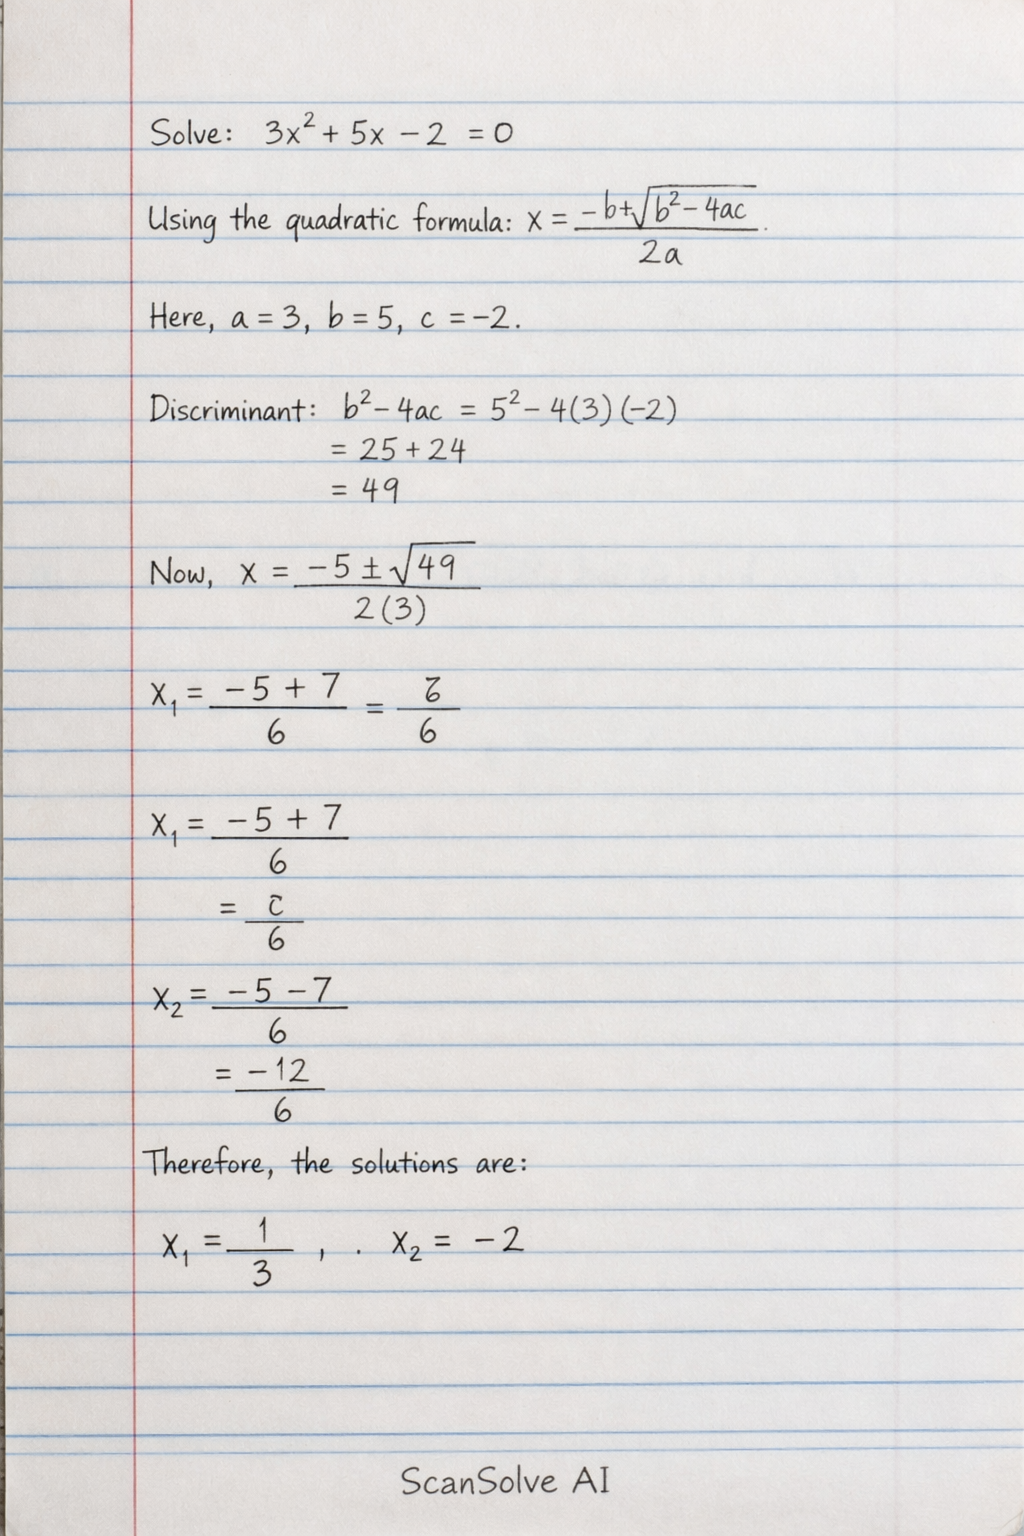 Solve: 3x² + 5x − 2 = 0
Using the quadratic formula: x = (−b+√(b² − 4ac)) / 2a.
Here, a = 3, b = 5, c = −2.
Discriminant: b² − 4ac = 5² − 4(3)(−2)
= 25 + 24
= 49
Now, x = (−5 ± √49) / 2(3)
x₁ = (−5 + 7) / 6 = / 6
x₁ = (−5 + 7) / 6
= / 6
x₂ = (−5 − 7) / 6
= −12 / 6
Therefore, the solutions are:
x₁ = 1 / 3 , . x₂ = −2
ScanSolve AI